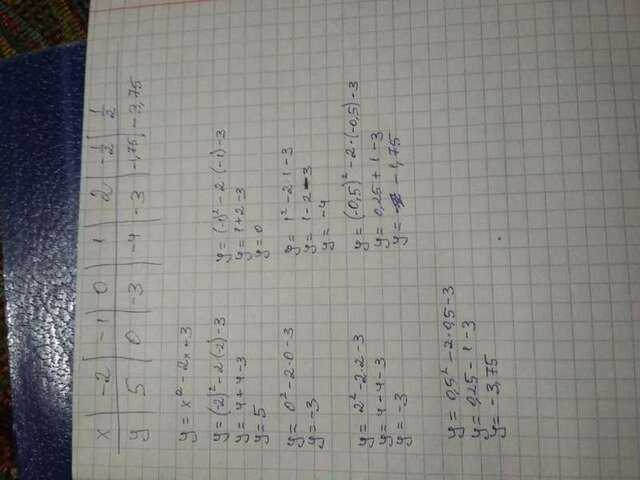 x | -2 | -1 | 0 | 1 | 2 | -1/2 | 1/2
y | 5 | 0 | -3 | -4 | -3 | -1,75 | -3,75
y = x² - 2x - 3
y = (-2)² - 2·(-2) - 3
y = 4 + 4 - 3
y = 5
y = (-1)² - 2·(-1) - 3
y = 1 + 2 - 3
y = 0
y = 0² - 2·0 - 3
y = -3
y = 1² - 2·1 - 3
y = 1 - 2 - 3
y = -4
y = 2² - 2·2 - 3
y = 4 - 4 - 3
y = -3
y = (-0,5)² - 2·(-0,5) - 3
y = 0,25 + 1 - 3
y = -1,75
y = 0,5² - 2·0,5 - 3
y = 0,25 - 1 - 3
y = -3,75